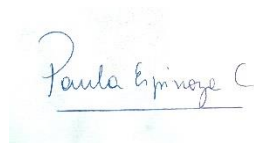 Paula Espinoza C